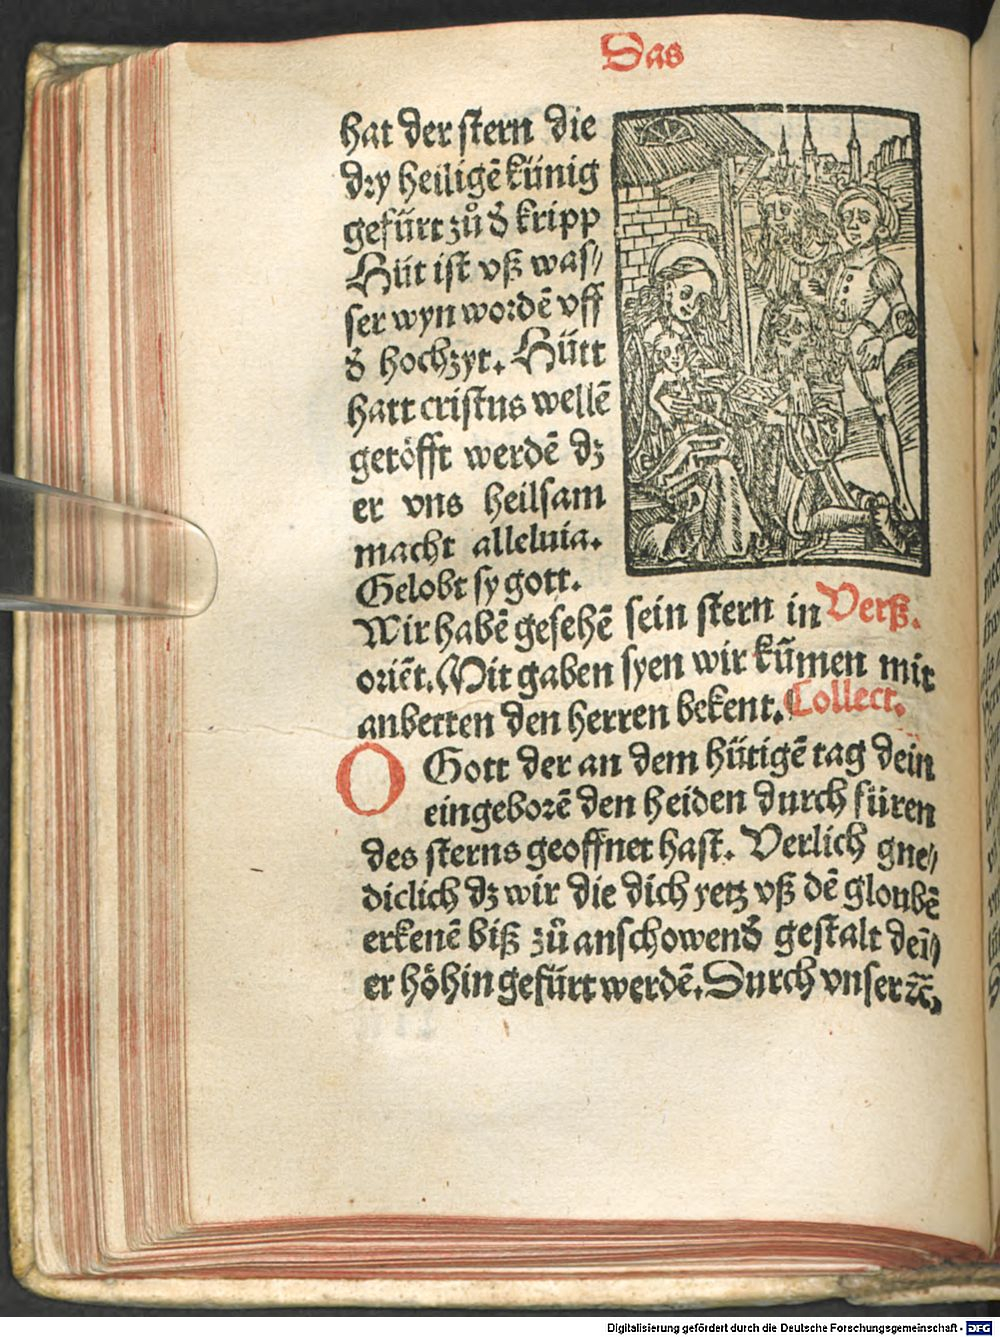 Das
hat der stern die
dry heiligē künig
gefürt zů d̕ kripp
Hüt ist vß was⸗
ser wyn wordē vff
d̕ hochzyt. Hütt
hatt cristus wellē
getöfft werdē dz
er vns heilsam
macht alleluia.
Gelobt sy gott. Verß.
Wir habē gesehē sein stern in
oriēt. Mit gaben syen wir kūmen mit
anbetten den herren bekent. Collect.
O Gott der an dem hütigē tag dein
eingeborē den heiden durch füren
des sterns geoffnet hast. Verlich gne⸗
diclich dz wir die dich yetz vß dē gloubē
erkenē biß zů anschowend̕ gestalt dein̄⸗
er höhin gefürt werdē. Durch vnser ꝛc̄.
Digitalisierung gefördert durch die Deutsche Forschungsgemeinschaft - DFG